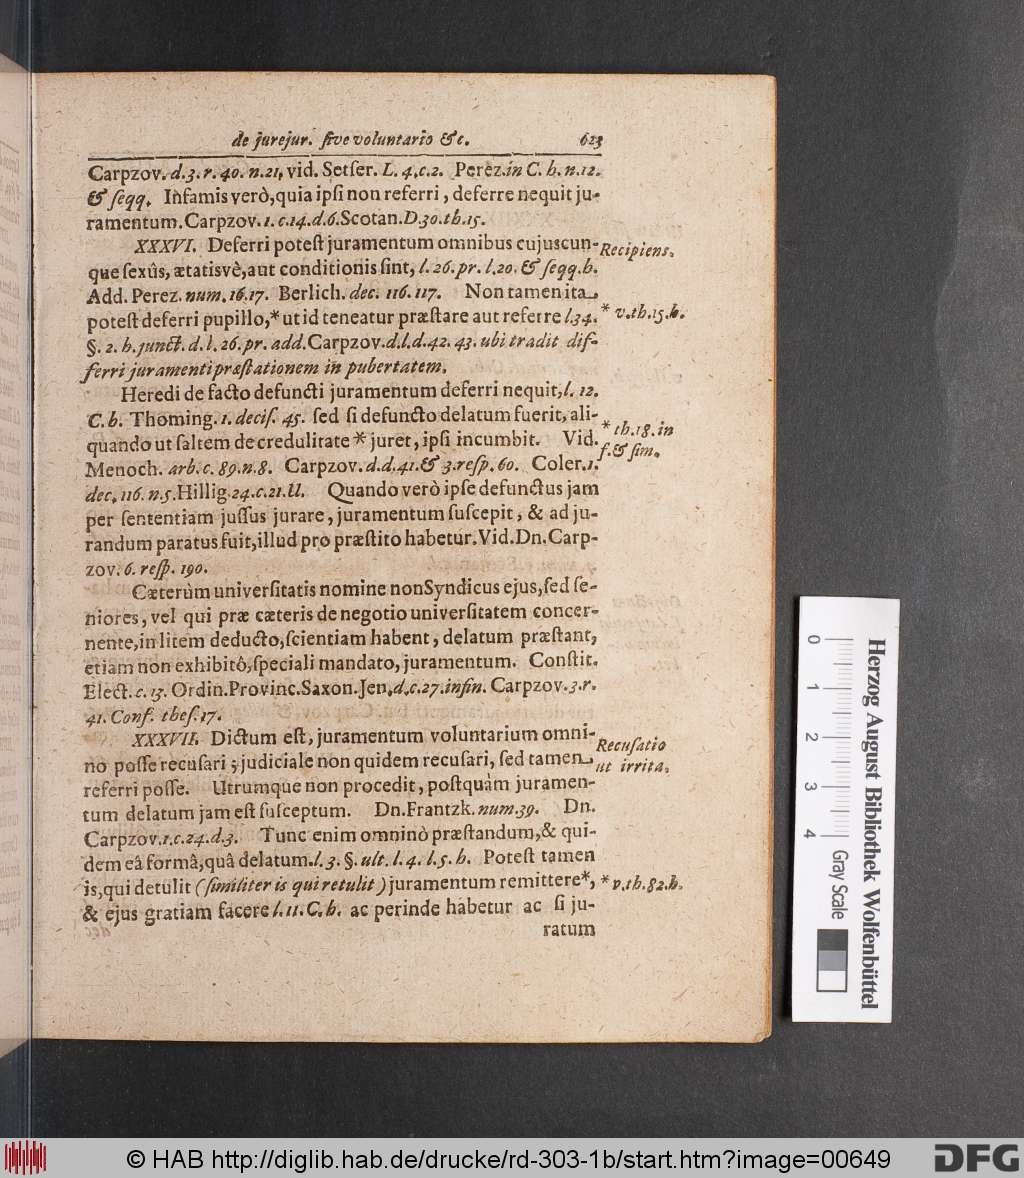 de jurejur. ſive voluntario &c. 623
Carpzov. d. 3. r. 40. n. 21, vid. Setſer. L. 4. c. 2. Perez. in C. h. n. 12.
& ſeqq. Infamis verò, quia ipſi non referri, deferre nequit ju-
ramentum. Carpzov. 1. c. 14. d. 6. Scotan. D. 30. th. 15.
XXXVI. Deferri poteſt juramentum omnibus cujuscun-
Recipiens.
que ſexûs, ætatisvè, aut conditionis ſint, l. 26. pr. l. 20. & ſeqq. h.
Add. Perez. num. 16. 17. Berlich. dec. 116. 117. Non tamen ita
poteſt deferri pupillo, * ut id teneatur præſtare aut referre l. 34.
* v. th. 15. h.
§. 2. h. junct. d. l. 26. pr. add. Carpzov. d. l. d. 42. 43. ubi tradit dif-
ferri juramenti præſtationem in pubertatem.
Heredi de facto defuncti juramentum deferri nequit, l. 12.
C. h. Thoming. 1. deciſ. 45. ſed ſi defuncto delatum fuerit, ali-
quando ut ſaltem de credulitate * juret, ipſi incumbit. Vid.
* th. 18. in
f. & ſim.
Menoch. arb. c. 89. n. 8. Carpzov. d. d. 41. & 3. reſp. 60. Coler. 1.
dec. 116. n. 5. Hillig. 24. c. 21. ll. Quando verò ipſe defunctus jam
per ſententiam juſſus jurare, juramentum ſuſcepit, & ad ju-
randum paratus fuit, illud pro præſtito habetur. Vid. Dn. Carp-
zov. 6. reſp. 190.
Cæterùm univerſitatis nomine non Syndicus ejus, ſed ſe-
niores, vel qui præ cæteris de negotio univerſitatem concer-
nente, in litem deducto, ſcientiam habent, delatum præſtant,
etiam non exhibitô, ſpeciali mandato, juramentum. Conſtit.
Elect. c. 13. Ordin. Provinc. Saxon. Jen. d. c. 27. in fin. Carpzov. 3. r.
41. Conf. theſ. 17.
XXXVII. Dictum eſt, juramentum voluntarium omni-
Recuſatio
no poſſe recuſari; judiciale non quidem recuſari, ſed tamen
ut irrita.
referri poſſe. Utrumque non procedit, poſtquàm juramen-
tum delatum jam eſt ſuſceptum. Dn. Frantzk. num. 39. Dn.
Carpzov. 1. c. 24. d. 3. Tunc enim omninò præſtandum, & qui-
dem eâ formâ, quâ delatum. l. 3. §. ult. l. 4. l. 5. h. Poteſt tamen
is, qui detulit (ſimiliter is qui retulit) juramentum remittere*,
* v. th. 82. h.
& ejus gratiam facere l. 11. C. h. ac perinde habetur ac ſi ju-
ratum
0 1 2 3 4
Herzog August Bibliothek Wolfenbüttel
Gray Scale
© HAB http://diglib.hab.de/drucke/rd-303-1b/start.htm?image=00649
DFG